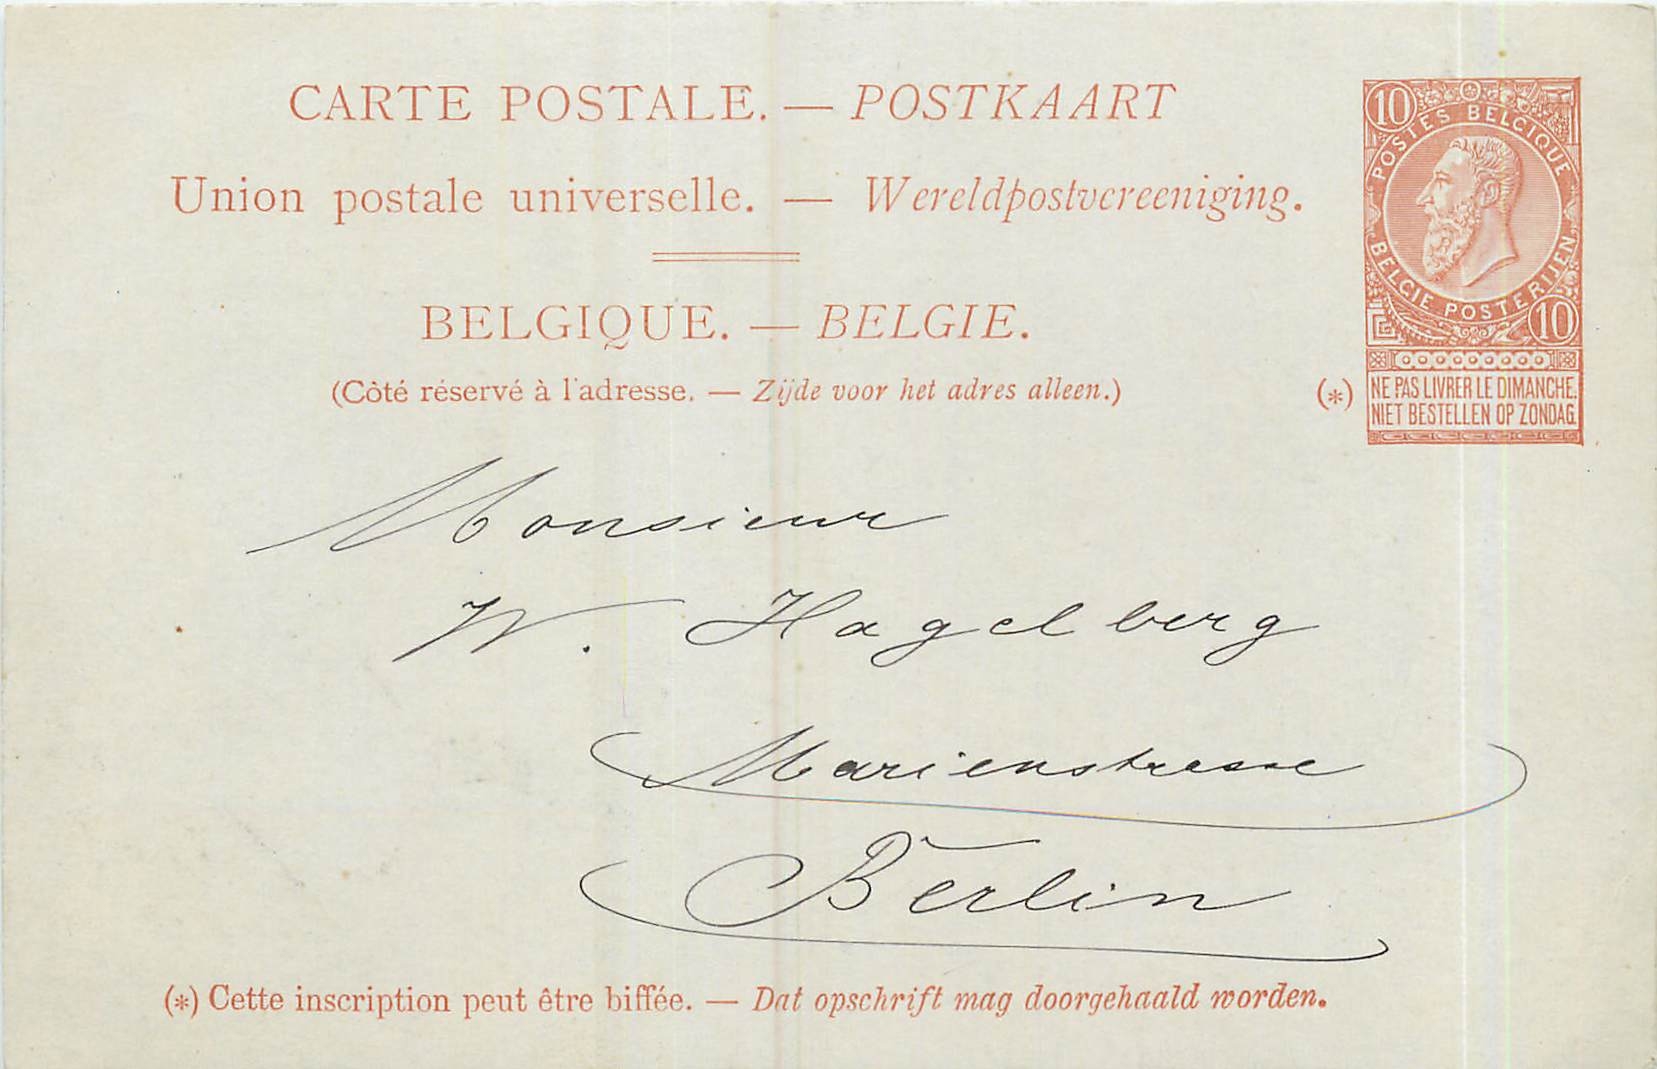 CARTE POSTALE. — POSTKAART
Union postale universelle. — Wereldpostvereeniging.
BELGIQUE. — BELGIE.
(Côté réservé à l'adresse. — Zijde voor het adres alleen.)
10
POSTES BELGIQUE
BELGIE POSTERIJEN
10
(*)
NE PAS LIVRER LE DIMANCHE.
NIET BESTELLEN OP ZONDAG.
Monsieur
W. Hagelberg
Marienstrasse
Berlin
(*) Cette inscription peut être biffée. — Dat opschrift mag doorgehaald worden.